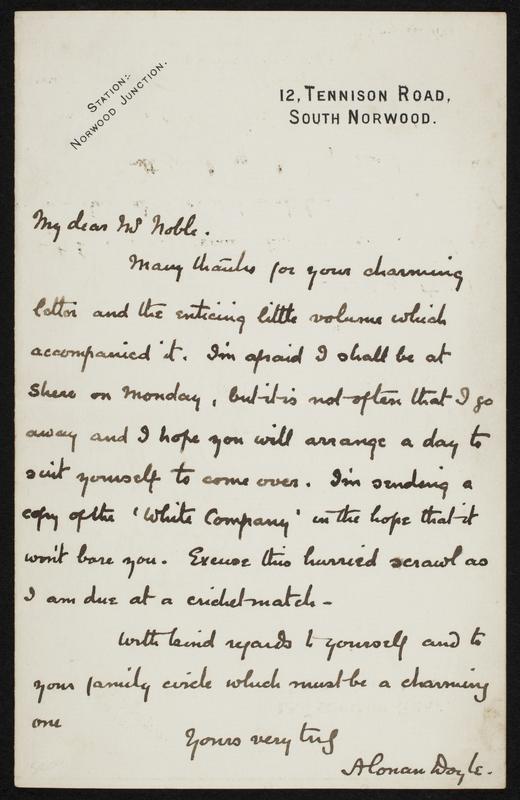 STATION:-
NORWOOD JUNCTION.
12, TENNISON ROAD,
SOUTH NORWOOD.
My dear Mr Noble.
Many thanks for your charming
letter and the enticing little volume which
accompanied it. I'm afraid I shall be at
Shere on Monday, but it is not often that I go
away and I hope you will arrange a day to
suit yourself to come over. I'm sending a
copy of the 'White Company' in the hope that it
won't bore you. Excuse this hurried scrawl as
I am due at a cricket match -
With kind regards to yourself and to
your family circle which must be a charming
one
Yours very truly
A Conan Doyle.